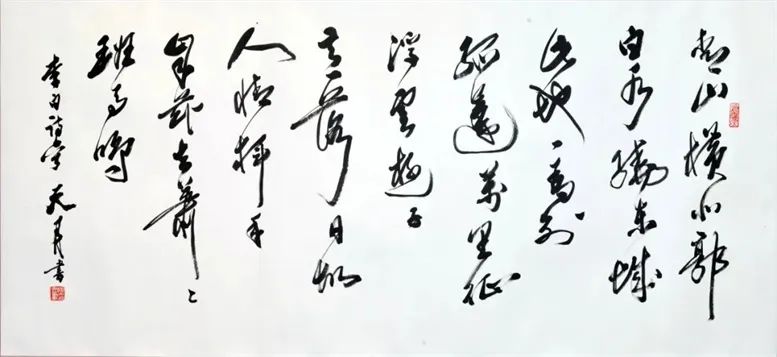 青山橫北郭
白水繞東城
此地一為別
孤蓬萬里征
浮雲遊子
意落日故
人情揮手
自茲去蕭〻
班馬鳴
李白詩 書